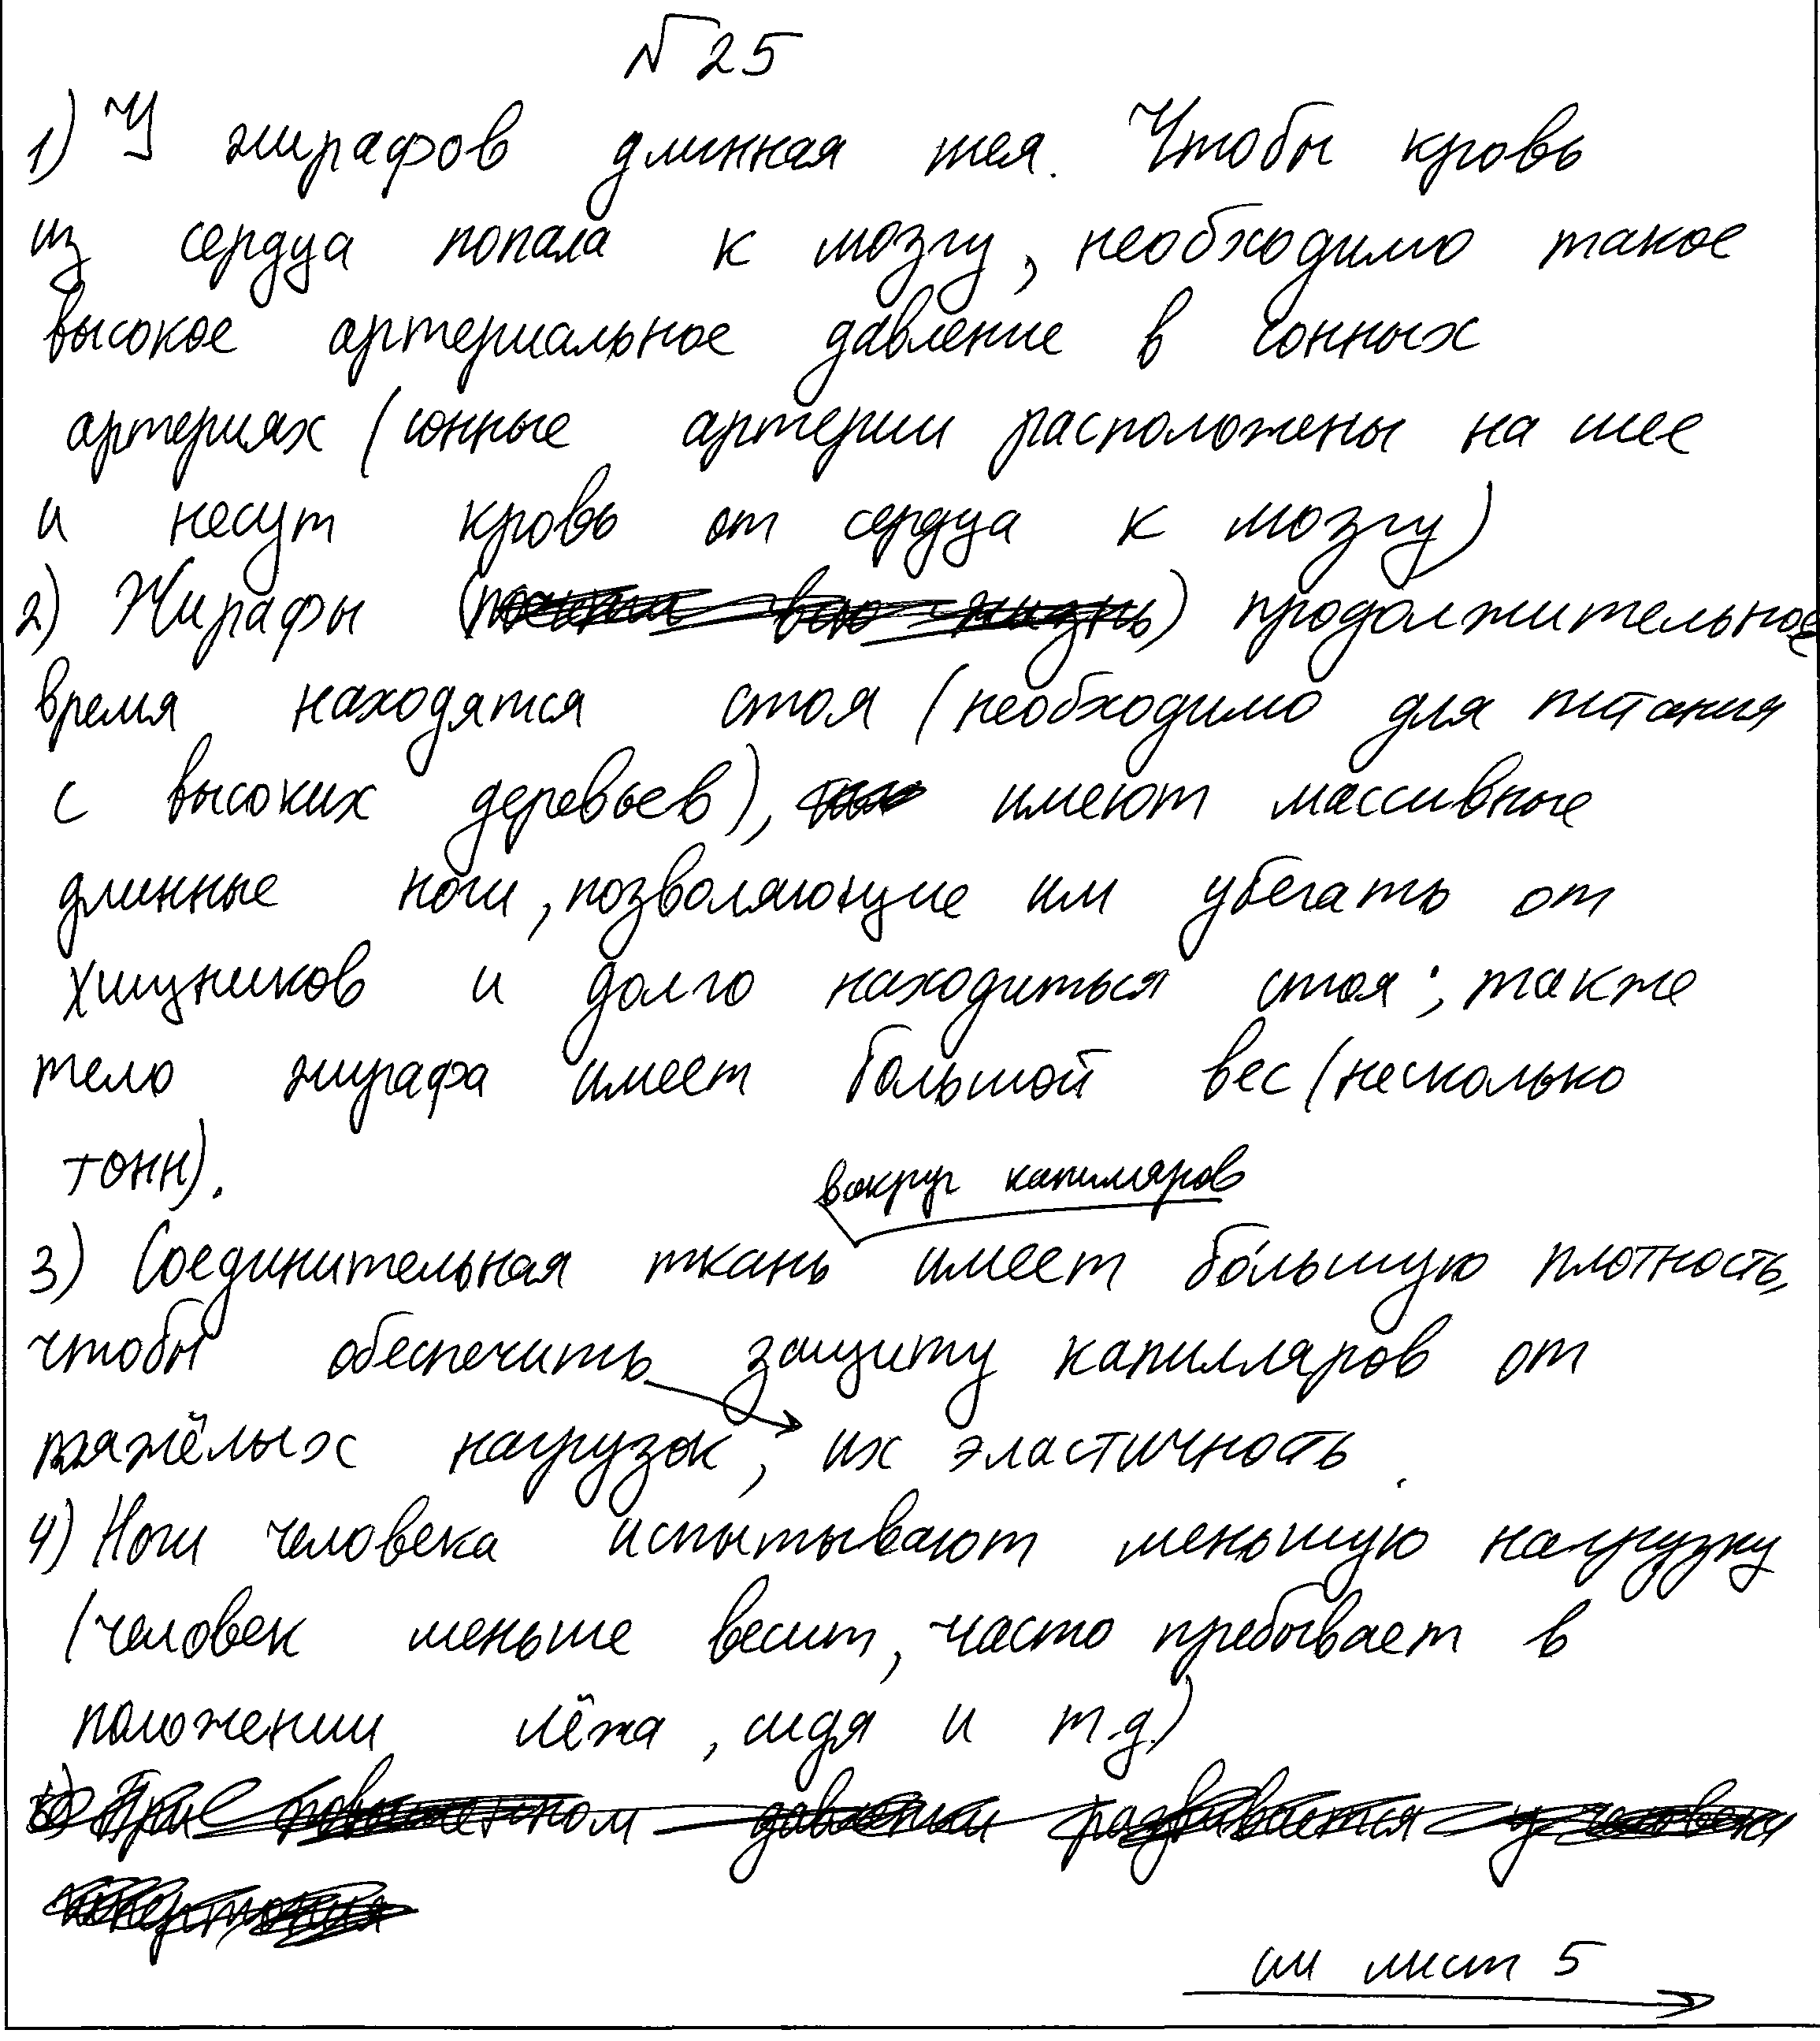 №25
1) У жирафов длинная шея. Чтобы кровь
из сердца попала к мозгу, необходимо такое
высокое артериальное давление в сонных
артериях (сонные артерии расположены на шее
и несут кровь от сердца к мозгу)
2) Жирафы ( всю жизнь) продолжительное
время находятся стоя (необходимо для питания
с высоких деревьев), имеют массивные
длинные ноги, позволяющие им убегать от
хищников и долго находиться стоя; также
тело жирафа имеет большой вес (несколько
тонн).
вокруг капилляров
3) Соединительная ткань имеет бо́льшую плотность,
чтобы обеспечить защиту капилляров от
тяжёлых нагрузок, их эластичность.
4) Ноги человека испытывают меньшую нагрузку
(человек меньше весит, часто пребывает в
положении лёжа, сидя и т.д.)
5) При повышенном давлении развивается у человека
гипертония
см лист 5